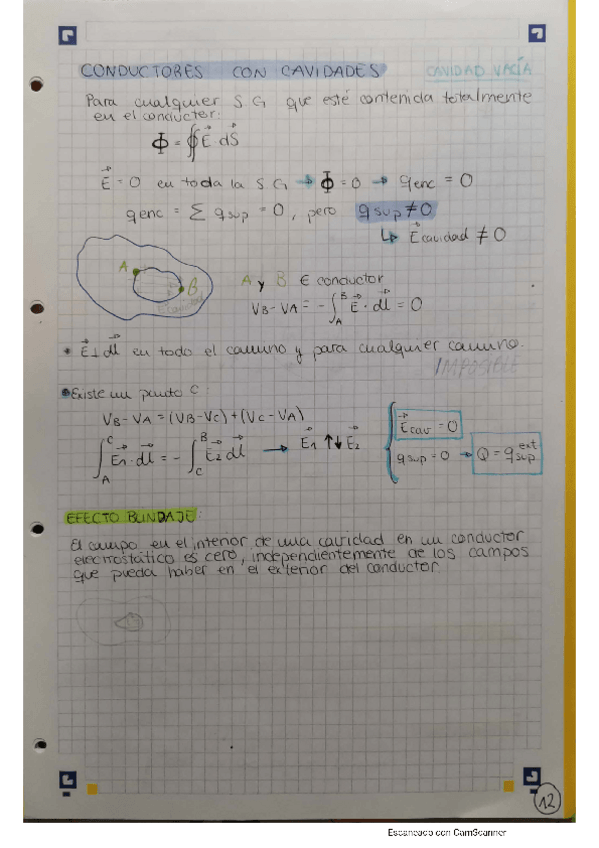 CONDUCTORES CON CAVIDADES CAVIDAD VACÍA
Para cualquier S G que esté contenida totalmente
en el conductor:
Φ = ∮ E⃗ · dS⃗
E⃗ = 0 en toda la S G → Φ = 0 → q enc = 0
q enc = Σ q sup = 0, pero q sup ≠ 0
↳ E⃗ cavidad ≠ 0
A
B
A y B ∈ conductor
V_B - V_A = - ∫_A^B E⃗ · dl⃗ = 0
• E⃗ ⊥ dl⃗ en todo el camino y para cualquier camino.
IMPOSIBLE
• Existe un punto C:
V_B - V_A = (V_B - V_C) + (V_C - V_A)
∫_A^C E⃗1 · dl⃗ = - ∫_C^B E⃗2 dl⃗ → E⃗1 ↑↓ E⃗2
E⃗ cav = 0
q sup = 0 → Q = q sup ext
EFECTO BLINDAJE:
El campo en el interior de una cavidad en un conductor
electrostático es cero, independientemente de los campos
que pueda haber en el exterior del conductor.
12
Escaneado con CamScanner